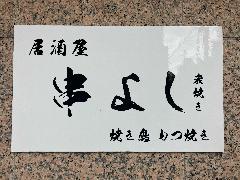 居酒屋
串よし
炭焼き
焼き鳥 もつ焼き